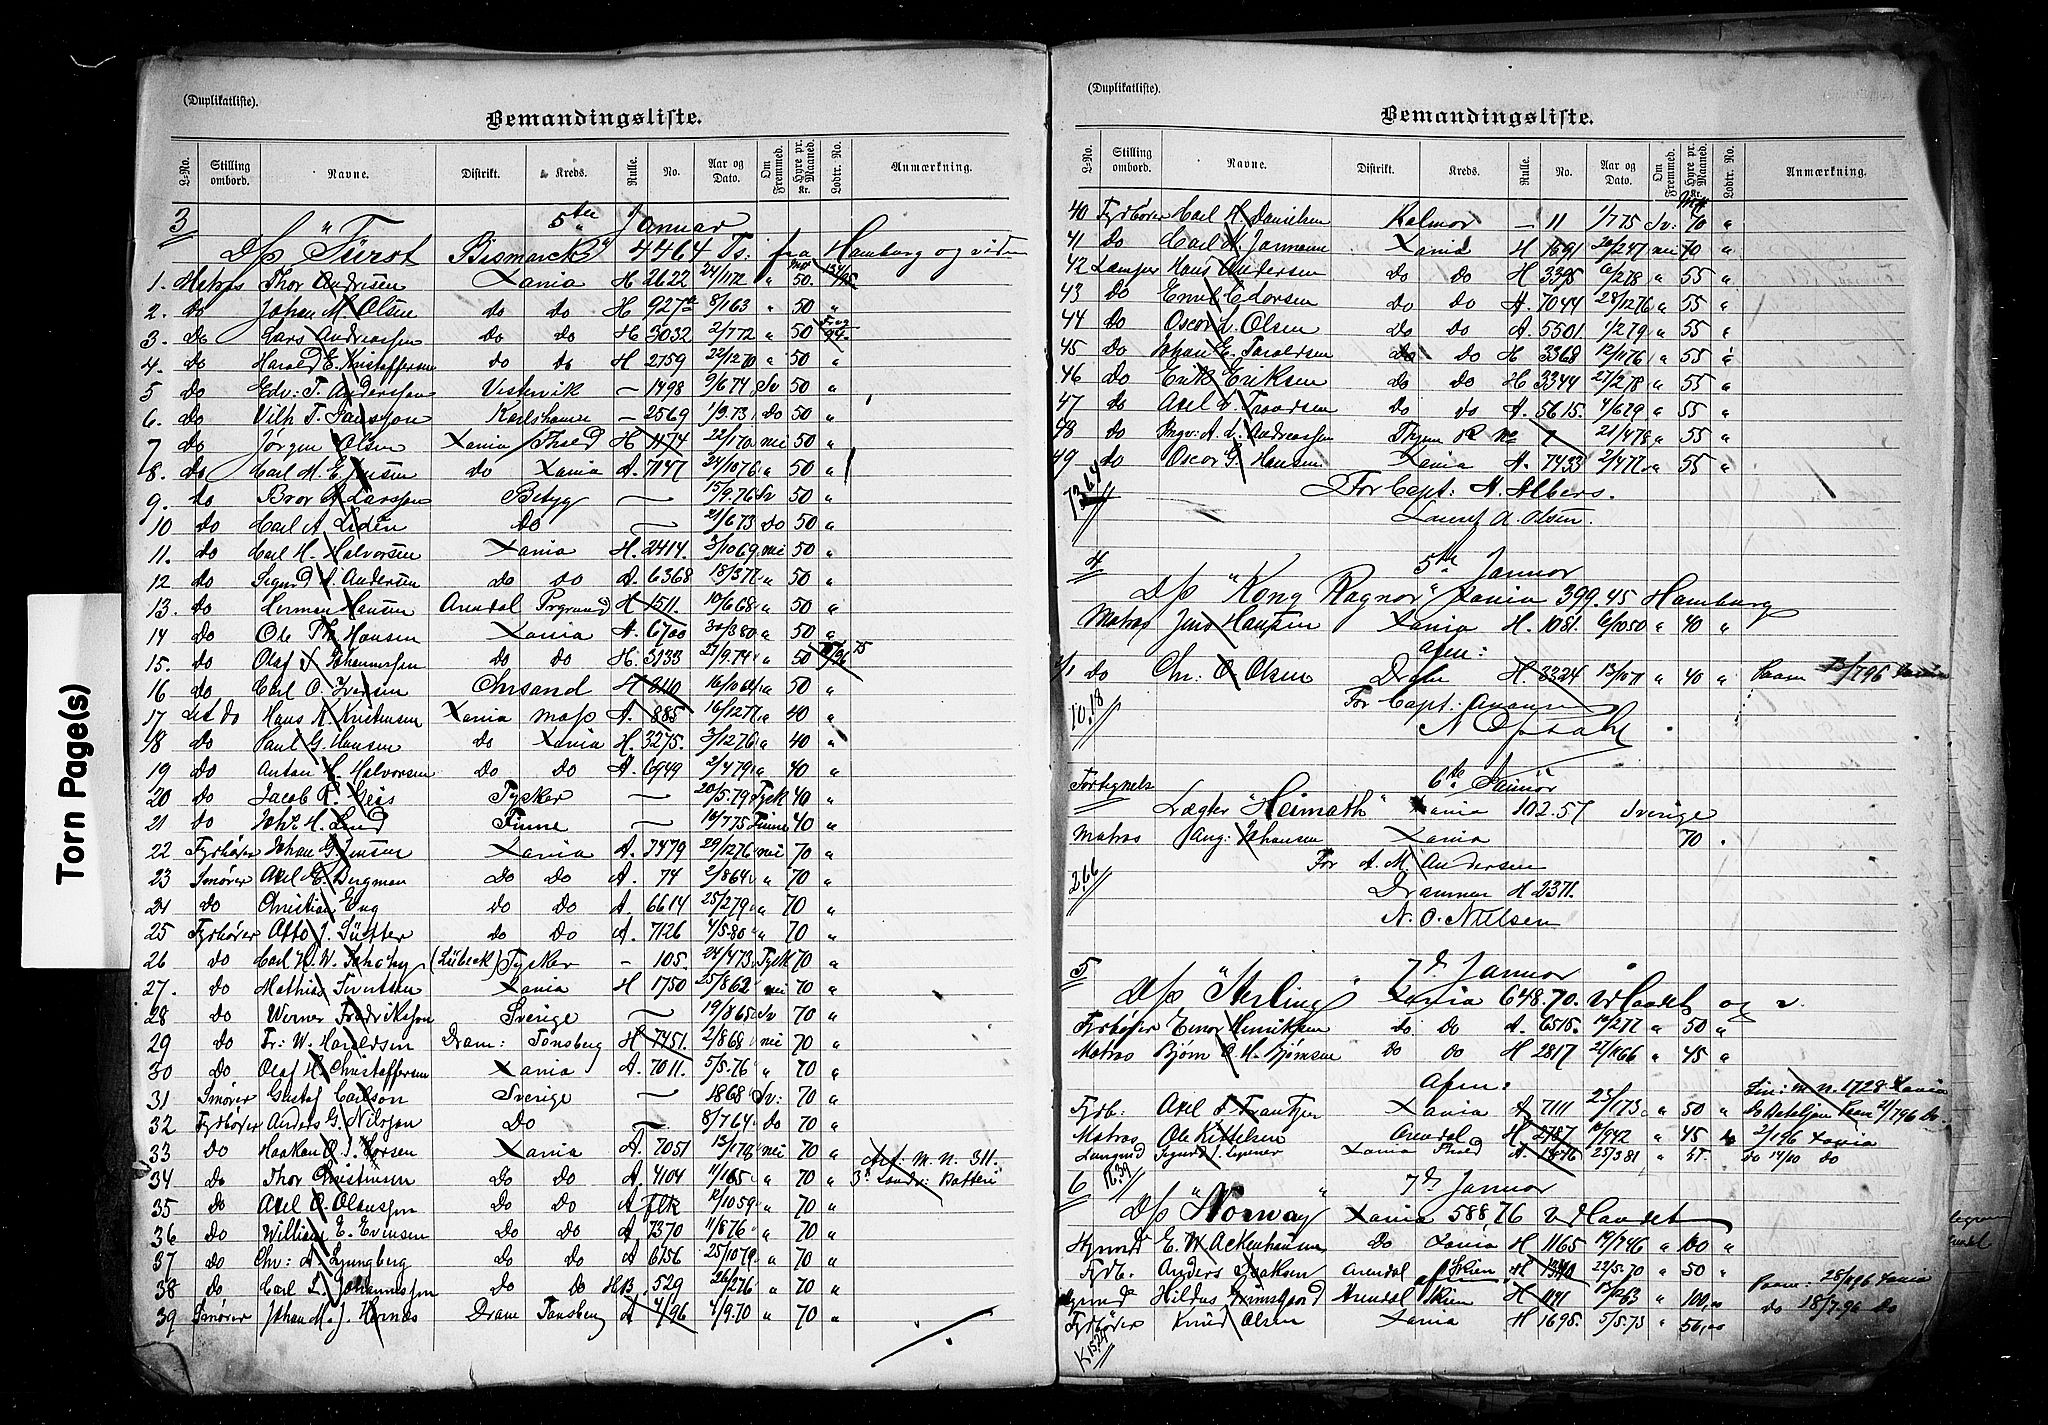 Torn Page(s)
(Duplikatliste).
Bemandingsliste.
L-No. Stilling ombord. Navne. Distrikt. Kreds. Rulle. No. Aar og Dato. Om Fremmed. Hyre pr. Maaned. Kr. Lodtr. No. Anmærkning.
3 5te Januar
D/s "Fürst Bismarck" 4464 Ts: fra Hamburg og videre
1. Matros Thor Andresen Xania H 2622 24/1172 " 50.
2. do Johan M. Olsen do do H 927a 8/163 " 50 "
3. do Lars Andreassen do do H 3032 2/772 " 50
4. do Harald E. Kristoffersen do do H 2759 22/1270 " 50 "
5 do Edv: T. Andersson Vestervik — 1498 9/674 Sv 50 "
6. do Vilh T. Jansson Karlshamn — 2569 1/9.73 Do 50 "
7 do Jørgen Olsen Xania Thsed H 1474 22/170 nei 50 "
8. do Carl M. E. Jensen do Xania A. 7147 24/1076 " 50 "
9. do Bror A Larsson Betyg — 15/9.76 Sv 50 "
10 do Carl A. Liden Do — 21/673 Do 50 "
11. do Carl H. Halvorsen Xania H. 2414. 3/1069 nei 50 "
12 do Sigurd A. Andersen do do A. 6368 18/377 " 50 "
13. do Herman Hansen Arendal Prgrund H 1511. 10/668 " 50 "
14 do Ole Th Hansen Xania A. 6700 30/380 " 50 "
15. do Olaf S Johannessen do do H. 3133 27/9.74 " 50
16 do Carl O. Iversen Chrsand H 8110 16/1064 " 50 "
17 Let do Hans A. Kristensen Xania Moss A. 885 16/1277 " 40 "
18 do Paul G. Hansen do Xania H. 3275. 3/1276 " 40 "
19 do Anton H. Halvorsen do do A. 6949 2/479 " 40 "
20 do Jacob F. Geis Tysker — 20/5.79 Tysk 40 "
21 do Johs. H. Lind Finne — 16/775 Finne 40 "
22 Fyrbøter Johan G. Jensen Xania A. 7479 29/1276 nei 70 "
23 Smører Axel E. Bergman Do Do A. 74 2/864 " 70 "
24 do Christian Eng do do A. 6614 25/279 " 70 "
25 Fyrbøter Otto J. Sütter do do A. 7126 4/5.80 " 70 "
26 do Carl H. W. (Lübeck) Tysker - 105. 24/473 Tysk 70 "
27. do Mathias Sivertsen Xania H 1750 25/862 nei 70 "
28 do Werner Fredriksson Sverige — 19/865 Sv 70 "
29 do Fr: W. Haraldsen Dram: Tønsberg H 7451. 2/868 nei 70 "
30 do Olaf H. Christoffersen Xania A. 7011. 5/5.76 " 70 "
31 Smører Gustaf Carlson Sverige — 1868 Sv: 70 "
32 Fyrbøter Anders G. Nilsson Do — 8/764 do 70 "
33 do Haakon O. J. Xania A. 7051 13/176 nei 70 " m. n. 311.
34 do Thor Christensen do Do A. 4104 11/165 " 70 " 3die Landv: Batteri
35 do Axel O. Olausson Do Do A flk 12/1059 " 70 "
36 do William E. Evensen Do Do A 7370 11/876 " 70 "
37 do Chr: A. Ljungberg do Do A 6756 25/1079 " 70 "
38 do Carl L. Johannessen do do HB. 529 26/276 " 70 "
39 Smører Johan M. J. Hernæs Dram Tønsberg A 4/96 4/9.70 " 70 "
(Duplikatliste).
Bemandingsliste.
L-No. Stilling ombord. Navne. Distrikt. Kreds. Rulle. No. Aar og Dato. Om Fremmed. Hyre pr. Maaned. Kr. Lodtr. No. Anmærkning.
40 Fyrbøter Carl H Danielsen Kalmar — 11 1/775 Sv: 70 "
41 do Carl A. Jarmann Xania H 1691 20/247 nei 70 "
42 Lemper Hans Andersen do do H 3395 6/278 " 55 "
43 do Emil E. Larsen do do A. 7044 28/1276 " 55 "
44 do Oscar L. Olsen do do A. 5501 1/279 " 55 "
45 do Johan E. Taraldsen do do H 3368 12/1176 " 55 "
46 do Erik Eriksen do do H 3344 27/278 " 55 "
47 do Axel L. Trondsen do do A. 5615. 4/679 " 55 "
48 do Ingv: A. L. Andreassen 21/478 " 55 "
49 do Oscar G. Hansen Xania A. 7433 2/477 " 55 "
73.64 For Capt: A. Albers.
Lauritz A. Olsen.
4 5te Januar
D/s "Kong Ragnar" Xania 399.45 Hamburg
Matros Jens Hansen Xania H. 1081. 6/1050 " 40 "
Afm:
1/1 do Chr: O. Olsen Drbn H. 3324 13/1071 " 40 " Paam 13/796 Xania
10.18 For Capt: Anonsen
N. Opsahl
Fortegnelse 6te Januar
Lægter "Heimath" Xania 102.57 Sverige
Matros Aug: Johansen Xania 70 .
2.66 For A. M. Andersen
Drammen H 2371.
N. O. Nielsen
5 7de Januar
D/s "Sterling" Xania 648.70. Udlandet og v.
Fyrbøter Einar Henriksen do do A. 6515. 12/277 " 50 "
Matros Bjørn O. H. Bjørnsen do do H 2817 27/1166 " 45 "
Afm: Lin: m. n. 1728. Xania
Fyrb: Axel F. Frantzen Xania A 7111 23/173 " 50 " Bataljon Paam 21/796 do.
Matros Ole Kittelsen Arendal H 2787 10/942 " 45 " 2/196 Xania
Lungmd Sigurd J. Xania Thsed A. 1876 25/381 " 15. " do 14/10 do
6 16.39 7de Januar
D/s "Norway" Xania 588 76 Udlandet
Styrmd E. W. Ackenhausen do Xania H 1165 19/746 " 100 "
Fyrb. Anders Isaksen Arendal Skien H 1340 22/5.70 " 50 "
afm: Paam: 28/196 Xania
Styrmd Hildus Grimsgaard Arendal Skien H 1191 13/1263 " 100,00 do 18/7.96 do
Fyrbøter Knud Olsen Xania H 1695. 5/5.73 " 50,00
K 15.24